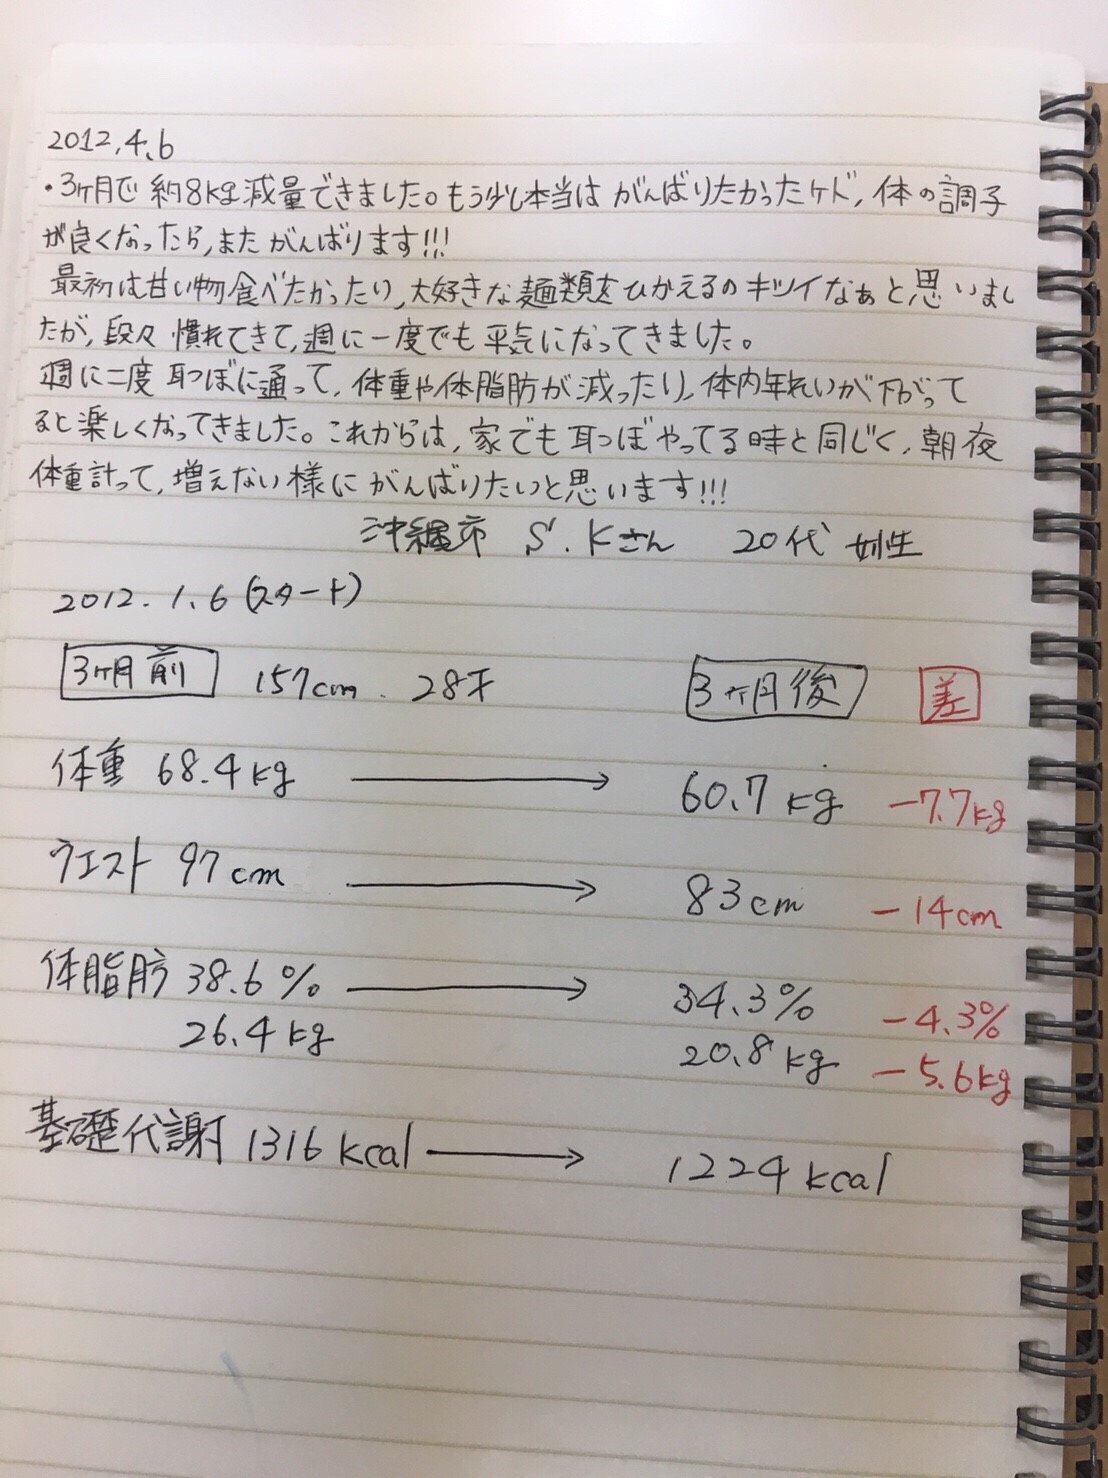 2012,4,6
・3ヶ月で約8kg減量できました。もう少し本当はがんばりたかったケド,体の調子
が良くなったら,またがんばります!!!
最初は甘い物食べたかったり,大好きな麺類をひかえるのキツイなぁと思いまし
たが,段々慣れてきて,週に一度でも平気になってきました。
週に二度耳つぼに通って,体重や体脂肪が減ったり,体内年れいが下がって
ると楽しくなってきました。これからは,家でも耳つぼやってる時と同じく,朝夜
体重計って,増えない様にがんばりたいと思います!!!
沖縄市 S.Kさん 20代 女性
2012.1.6(スタート)
3ヶ月前 157cm. 28才 3ヶ月後 差
体重 68.4kg → 60.7kg -7.7kg
ウエスト 97cm → 83cm -14cm
体脂肪 38.6% → 34.3% -4.3%
26.4kg 20.8kg -5.6kg
基礎代謝 1316kcal → 1224kcal